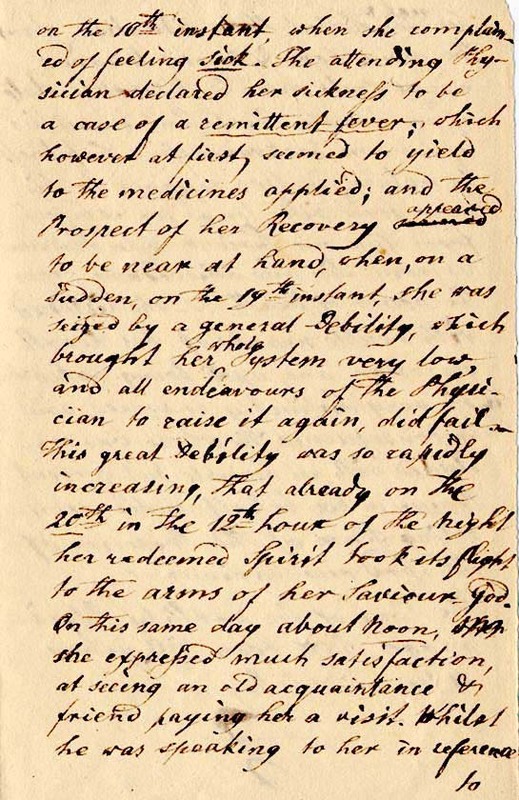 on the 10th instant, when she complain-
ed of feeling sick. The attending Phy-
sician declared her sickness to be
a case of a remittent fever; which
however at first, seemed to yield
to the medicines applied; and the
Prospect of her Recovery appeared
to be near at hand, when, on a
sudden, on the 19th instant, she was
seized by a general Debility, which
brought her whole System very low,
and all endeavours of the Physi-
cian to raise it again, did fail.
This great Debility was so rapidly
increasing, that already on the
20th in the 12th hour of the night
her redeemed Spirit took its flight
to the arms of her Saviour God.
On this same day about Noon,
she expressed much satisfaction,
at seeing an old acquaintance &
friend paying her a visit. Whilst
he was speaking to her in reference
to